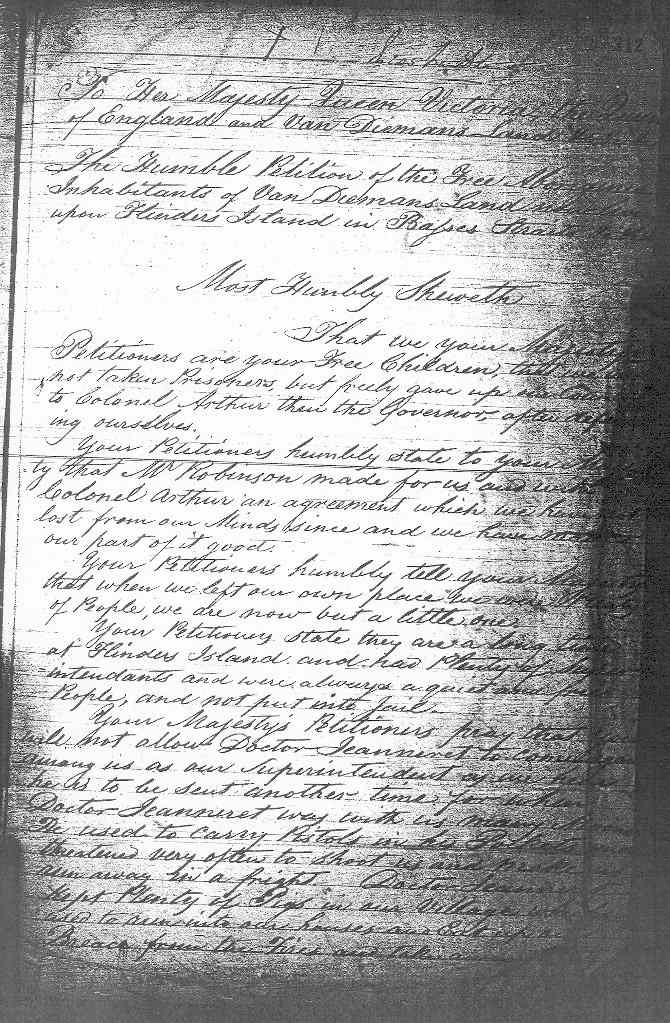 312
To Her Majesty Queen Victoria, the Queen
of England and Van Diemans Land
The Humble Petition of the Free
Inhabitants of Van Diemans Land
upon Flinders Island in Basses Straits
Most Humbly Sheweth
That we your Majesty's
Petitioners are your Free Children, that we
not taken Prisoners, but freely gave up our
to Colonel Arthur then the Governor, after
ing ourselves.
Your Petitioners humbly state to your
ty that Mr Robinson made for us and with
Colonel Arthur an agreement which we have
lost from our Minds since and we have made
our part of it good.
Your Petitioners humbly tell your Majesty
that when we left our own place we were Plenty
of People, we are now but a little one.
Your Petitioners state they are a long time
at Flinders Island and had Plenty of
intendants and were always a quiet and
People, and not put into Jail.
Your Majesty's Petitioners pray that
will not allow Doctor Jeanneret to come again
among us as our Superintendent as we
he is to be sent another time, for when
Doctor Jeanneret was with us many
He used to carry Pistols in his Pockets
threatened very often to shoot us and make us
run away in a fright. Doctor Jeanneret
kept Plenty of Pigs in our Village which
used to run into our houses and Eat up our
Bread from the Fires and take